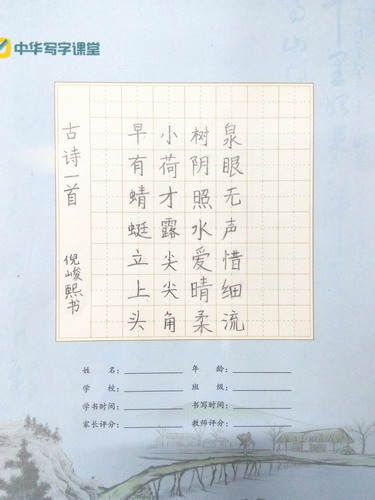 中华写字课堂
泉眼无声惜细流
树阴照水爱晴柔
小荷才露尖尖角
早有蜻蜓立上头
古诗一首
倪峻熙书
姓 名：
年 龄：
学 校：
班 级：
学书时间：
书写时间：
家长评分：
教师评分：